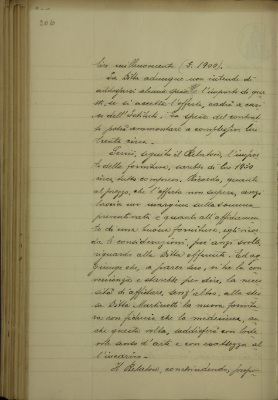 306
lire millenovecento (£. 1900).
La Ditta adunque non intende di
addossarsi alcuna spesa, l'importo di que-
ste, se si accetta l'offerta, cadrà a cari-
co dell'Istituto. La spesa del contrat-
to potrà ammontare a complessive lire
trenta circa.
Quindi, seguita il Relatore, l'impor-
to della fornitura, sarebbe di lire 1930
circa tutto compreso. Ricorda, quanto
al prezzo, che l'offerta non supera, anzi
lascia un margine sulla somma
preventivata e quanto all'affidamen-
to di una buona fornitura, egli rinno-
va le considerazioni, più sopra svolte,
riguardo alla Ditta offerente. Ed ag-
giunge che, a parer suo, vi ha la con-
venienza e starebbe per dire, la neces-
sità di affidare, senz'altro, alla stes-
sa Ditta Martinotti la nuova fornitu-
ra con fiducia che la medesima, an-
che questa volta, soddisferà con lode-
vole senso d'arte e con esattezza al-
l'incarico.
Il Relatore, concludendo, propo-